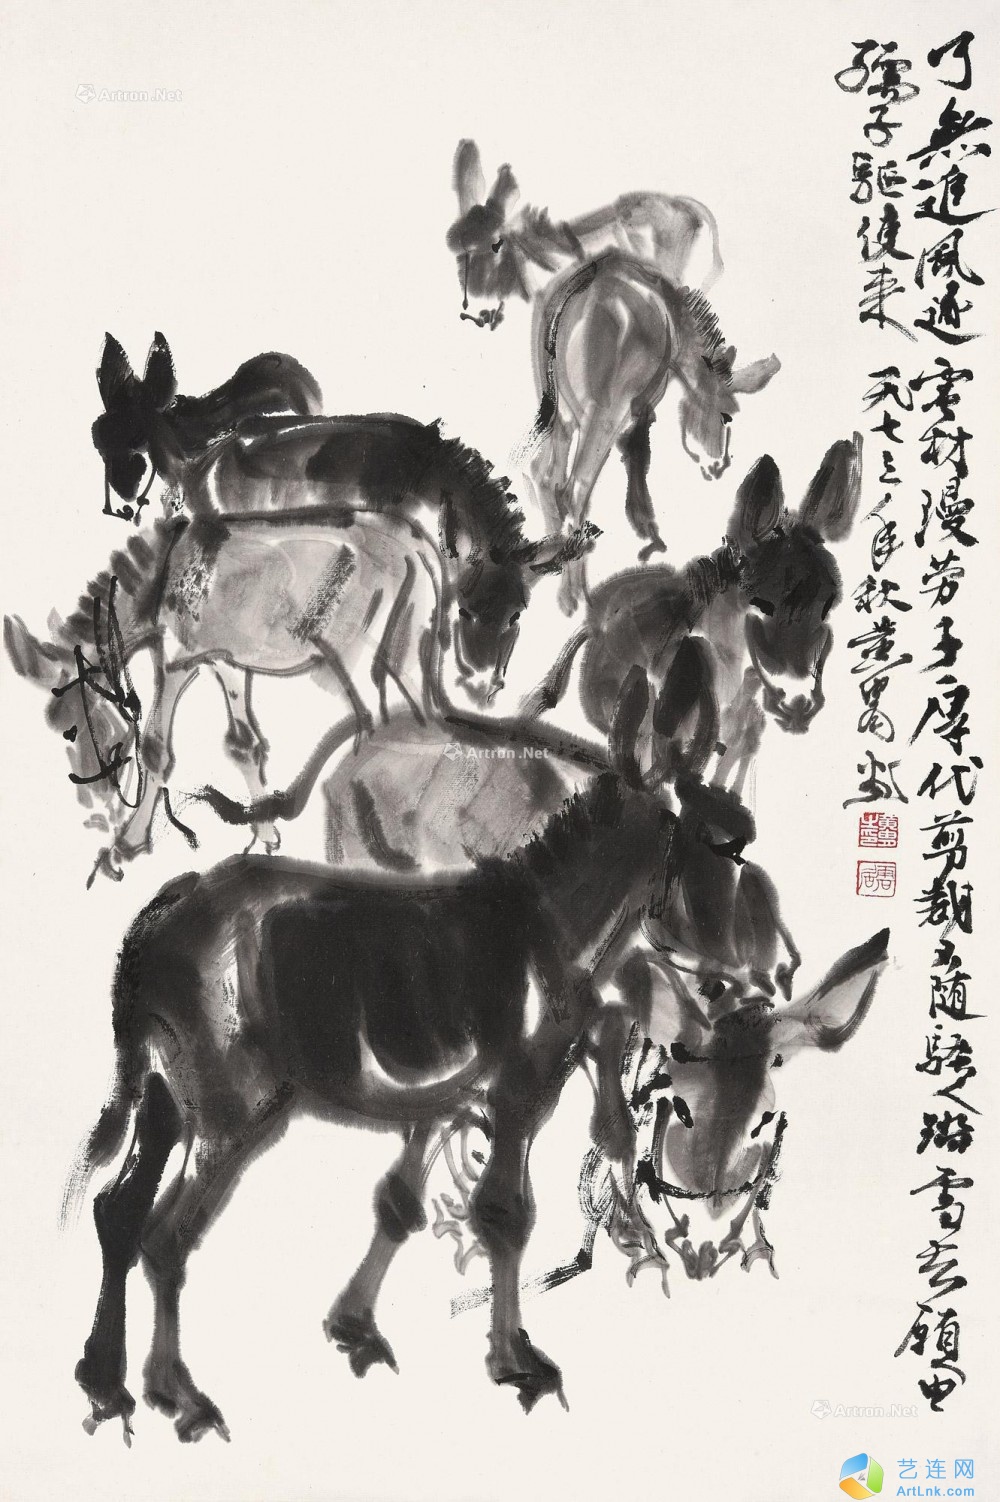 了無追風逐電材漫勞子厚代剪裁不隨騷人踏雪去願由
孺子驅使來 一九七三年秋黃胄
Artron.Net
Artron.Net
Artron.Net
艺连网
ArtLnk.com